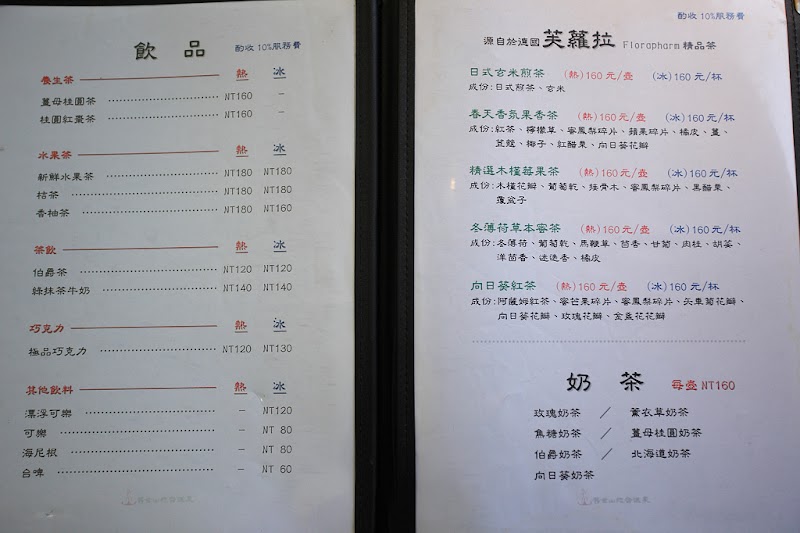 飲 品 酌收 10%服務費
養生茶 熱 冰
薑母桂圓茶 NT160 -
桂圓紅棗茶 NT160 -
水果茶 熱 冰
新鮮水果茶 NT180 NT180
桔茶 NT180 NT180
香柚茶 NT180 NT160
茶飲 熱 冰
伯爵茶 NT120 NT120
綠抹茶牛奶 NT140 NT140
巧克力 熱 冰
極品巧克力 NT120 NT130
其他飲料 熱 冰
漂浮可樂 - NT120
可樂 - NT 80
海尼根 - NT 80
台啤 - NT 60
酌收 10%服務費
源自於德國 芙蘿拉 Florapharm 精品茶
日式玄米煎茶 (熱)160 元/壺 (冰)160 元/杯
成份:日式煎茶、玄米
春天香氛果香茶 (熱)160 元/壺 (冰)160 元/杯
成份:紅茶、檸檬草、蜜鳳梨碎片、蘋果碎片、橘皮、薑、
荳蔻、椰子、紅醋栗、向日葵花瓣
精選木槿莓果茶 (熱)160 元/壺 (冰)160 元/杯
成份:木槿花瓣、葡萄乾、矮骨木、蜜鳳梨碎片、黑醋栗、
覆盆子
冬薄荷草本蜜茶 (熱)160 元/壺 (冰)160 元/杯
成份:冬薄荷、葡萄乾、馬鞭草、茴香、甘菊、肉桂、胡荽、
洋茴香、迷迭香、橘皮
向日葵紅茶 (熱)160 元/壺 (冰)160 元/杯
成份:阿薩姆紅茶、蜜芒果碎片、蜜鳳梨碎片、矢車菊花瓣、
向日葵花瓣、玫瑰花瓣、金盞花花瓣
奶 茶 每壺 NT160
玫瑰奶茶 / 薰衣草奶茶
焦糖奶茶 / 薑母桂圓奶茶
伯爵奶茶 / 北海道奶茶
向日葵奶茶